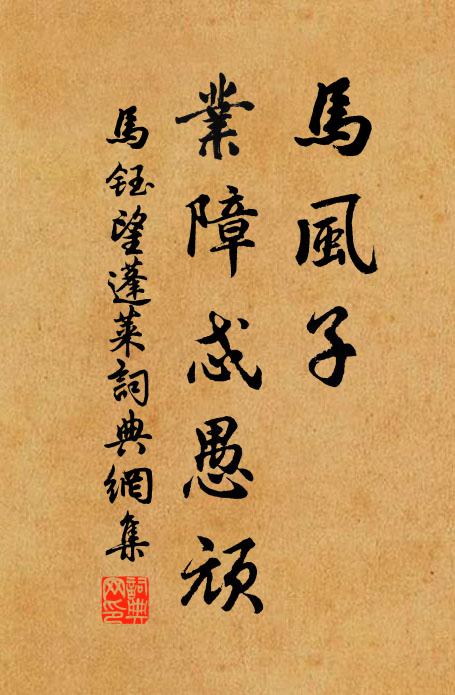 馬風子
業障忒愚頑
馬鈺望蓬萊詞典網集
詞典网印